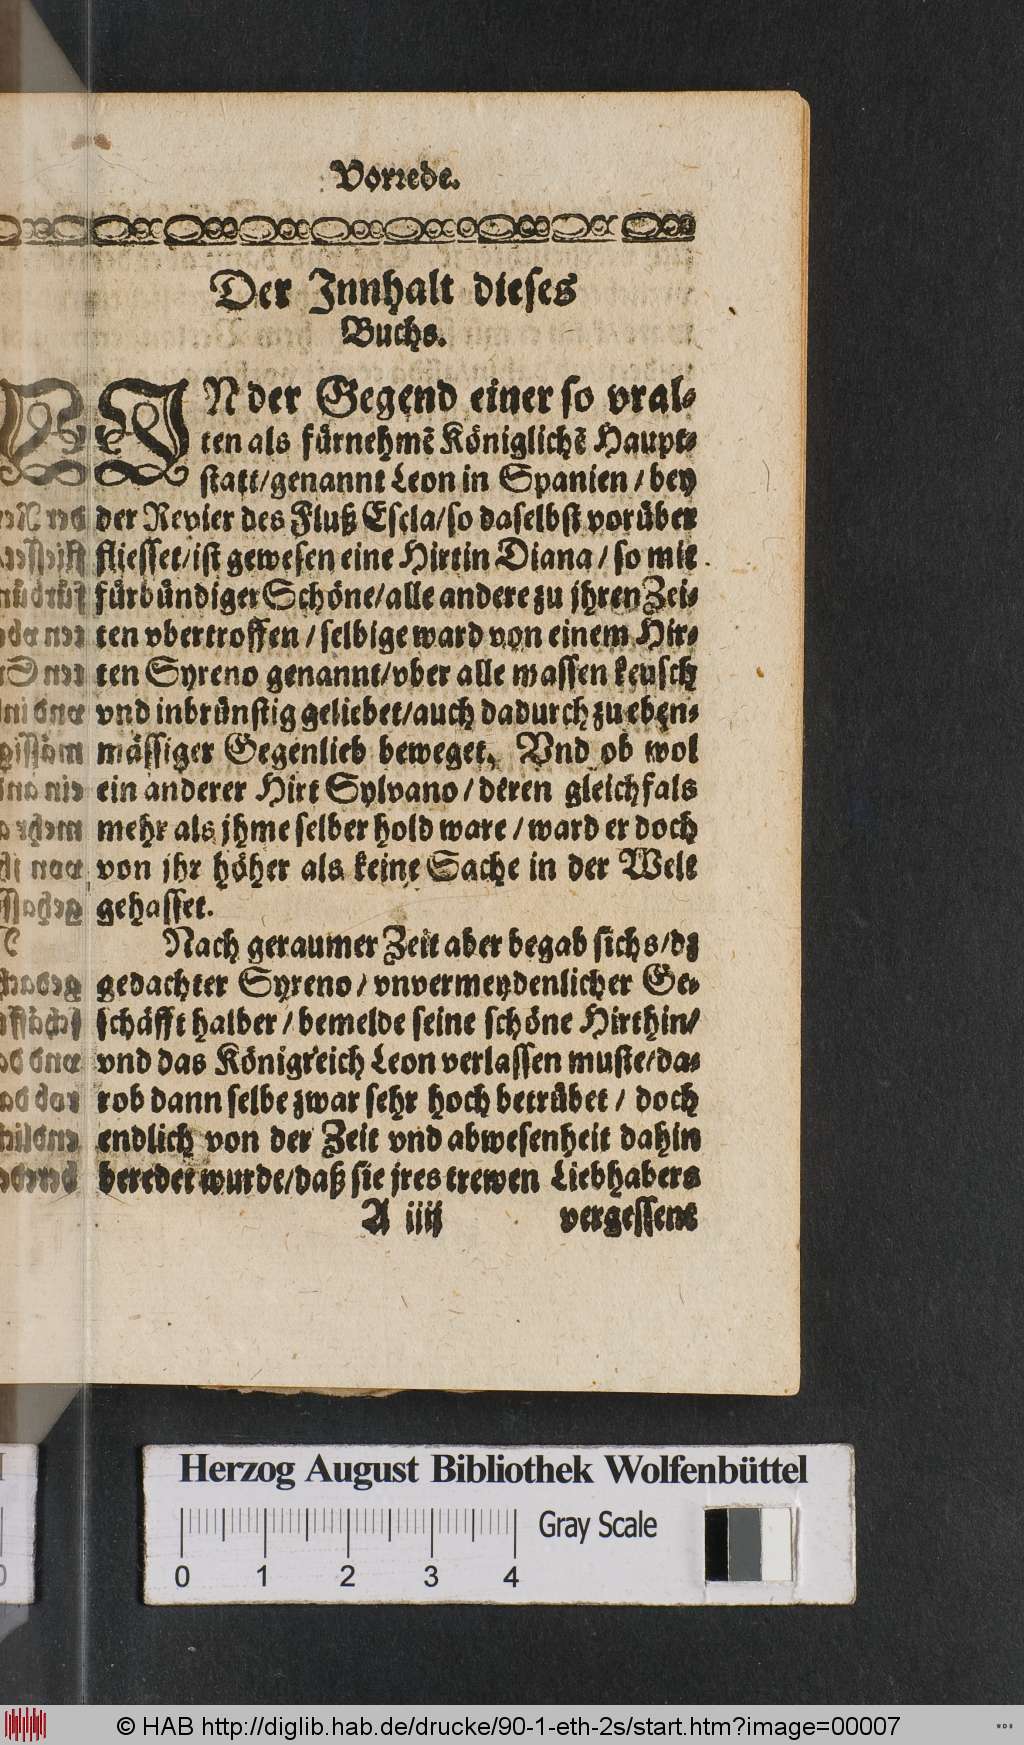 Vorrede.
Der Innhalt dieses
Buchs.
IN der Gegend einer so vral-
ten als fürnehmē Königlichē Haupt-
statt/genannt Leon in Spanien/bey
der Revier des Fluß Escla/so daselbst vorüber
fliesset/ist gewesen eine Hirtin Diana/so mit
fürbündiger Schöne/alle andere zu jhren Zei-
ten vbertroffen/selbige ward von einem Hir-
ten Syreno genannt/vber alle massen keusch
vnd inbrünstig geliebet/auch dadurch zu eben-
mässiger Gegenlieb beweget, Vnd ob wol
ein anderer Hirt Sylvano/deren gleichfals
mehr als jhme selber hold ware/ward er doch
von jhr höher als keine Sache in der Welt
gehasset.
Nach geraumer Zeit aber begab sichs/dz
gedachter Syreno/vnvermeydenlicher Ge-
schäfft halber/bemelde seine schöne Hirthin/
vnd das Königreich Leon verlassen muste/da-
rob dann selbe zwar sehr hoch betrübet/doch
endlich von der Zeit vnd abwesenheit dahin
beredet wurde/daß sie jres trewen Liebhabers
A iiij vergessent
Herzog August Bibliothek Wolfenbüttel
Gray Scale
0 1 2 3 4
© HAB http://diglib.hab.de/drucke/90-1-eth-2s/start.htm?image=00007